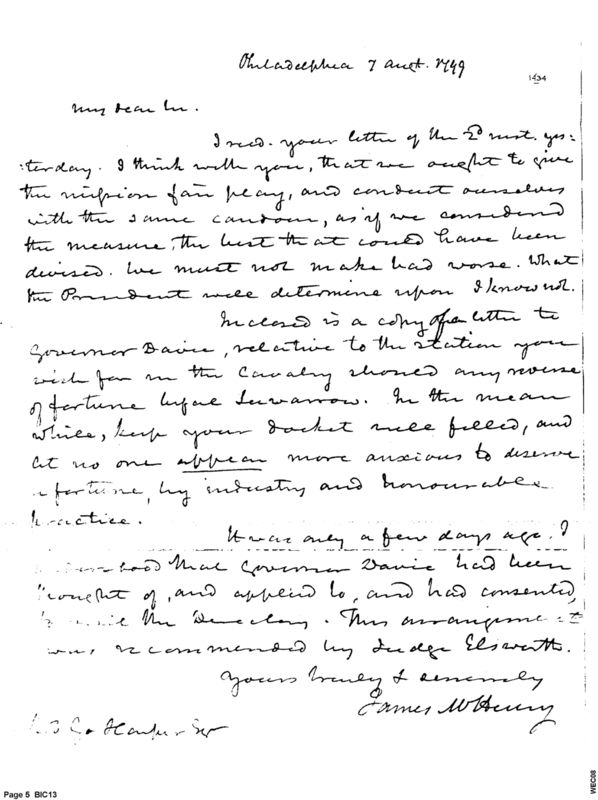 Philadelphia 7 augt. 1799
1434
My dear Sir.
I recd. your letter of the 2d inst. yes:
:terday. I think with you, that we ought to give
the mission fair play, and conduct ourselves
with the same candour, as if we considered
the measure, the best that could have been
devised. We must not make bad worse. What
the President will determine upon I know not.
Inclosed is a copy of a letter to
Governor Davie, relative to the station you
wish for in the Cavalry should any reverse
of fortune befal Suwarrow. In the mean
while, keep your docket well filled, and
let no one appear more anxious to deserve
a fortune, by industry and honourable
practice.
It was only a few days ago. I
that Governor Davie had been
thought of, and applied to, and had consented,
the Directory. This arrangement
was recommended by Judge Elsworth.
Yours truly & sincerely
James McHenry
Harper Esr
Page 5 BIC13
WEC08